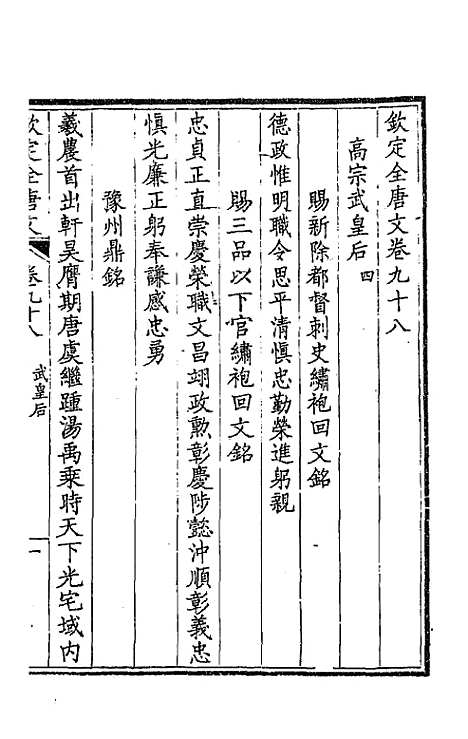 欽定全唐文卷九十八
高宗武皇后 四
賜新除都督刺史繡袍回文銘
德政惟明職令思平清慎忠勤榮進躬親
賜三品以下官繡袍回文銘
忠貞正直崇慶榮職文昌翊政勲彰慶陟懿沖順彰義忠
慎光廉正躬奉謙感忠勇
豫州鼎銘
羲農首出軒昊膺期唐虞繼踵湯禹乘時天下光宅域內
欽定全唐文 卷九十八 武皇后 一